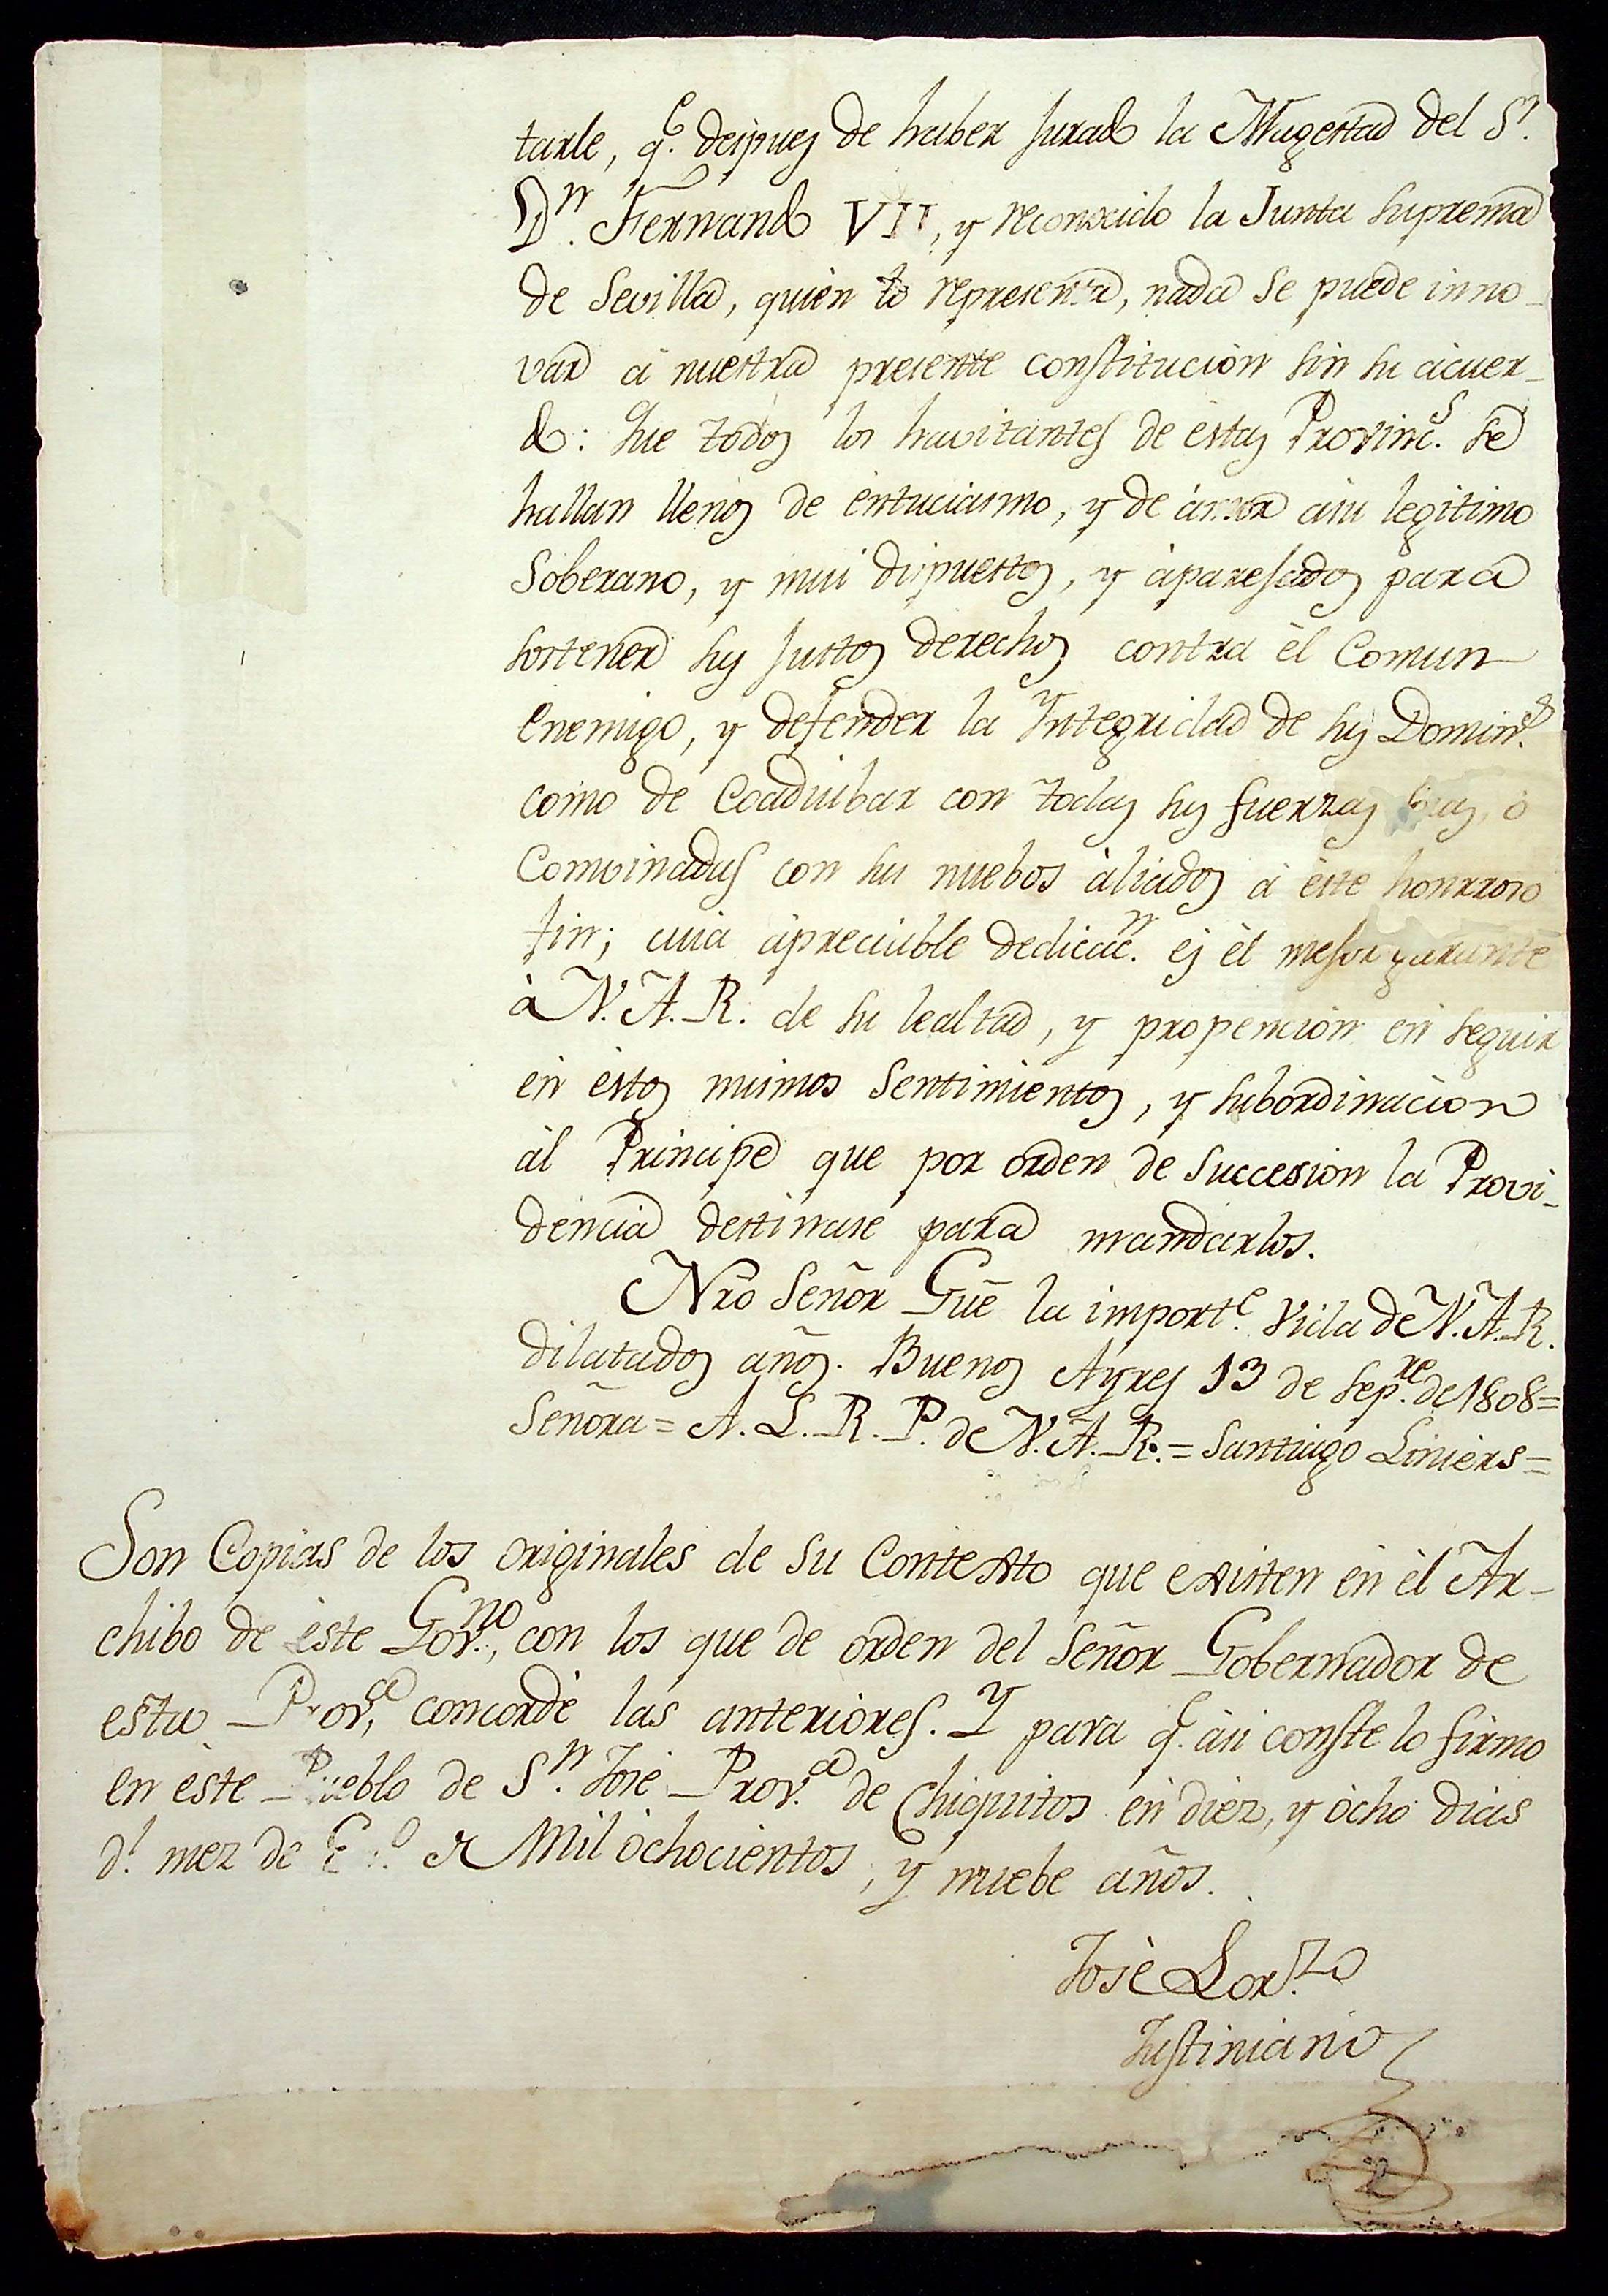 tarle, q.e despues de haber Jurado la Magestad del S.r
D.n Fernando VII, y reconocido la Junta Suprema
de Sevilla, quièn lo representa, nada se puede inno_
var á nuestra presente constitución sin su acuer_
do: Que todos los havitantes de estas Provinc.s se
hallan llenos de entuciasmo, y de àmor asu legitimo
Soberano, y mui dispuestos, y àparesados para
sostener sus Justos derechos contra èl Comun
Enemigo, y defender la Yntegridad de sus Domin.s
como de Coadiubar con todas sus fuerzas ó
Comvinadas con sus nuebos àliados á èste honrroso
fin; cuia àpreciable dedicac.n es èl mejor garante
à V. A. R. de su lealtad, y propención en seguir
en èstos mismos Sentimientos, y subordinacion
àl Principe que por orden de Succesion la Provi_
dencia destinase para mandarlos.
Nrõ Señor Gũe la import.e Vida de V. A. R.
dilatados años. Buenos Ayres 13 de Sep.re de 1808=
Señora = A. L. R. P. de V. A. R. = Santiago Liniers=
Son Copias de los originales de su Contexto que existen èn èl Ar_
chibo de èste Gov.no, con los que de orden del Señor Gobernador de
esta Prov.a, concordè las anteriores. Y para q.e àsi conste lo firmo
en èste Pueblo de S.n José Prov.a de Chiquitos èn diez, y ócho dias
d.l mez de E.o de Mil òchocientos, y nuebe años.
Josè Lor.zo
Justiniano